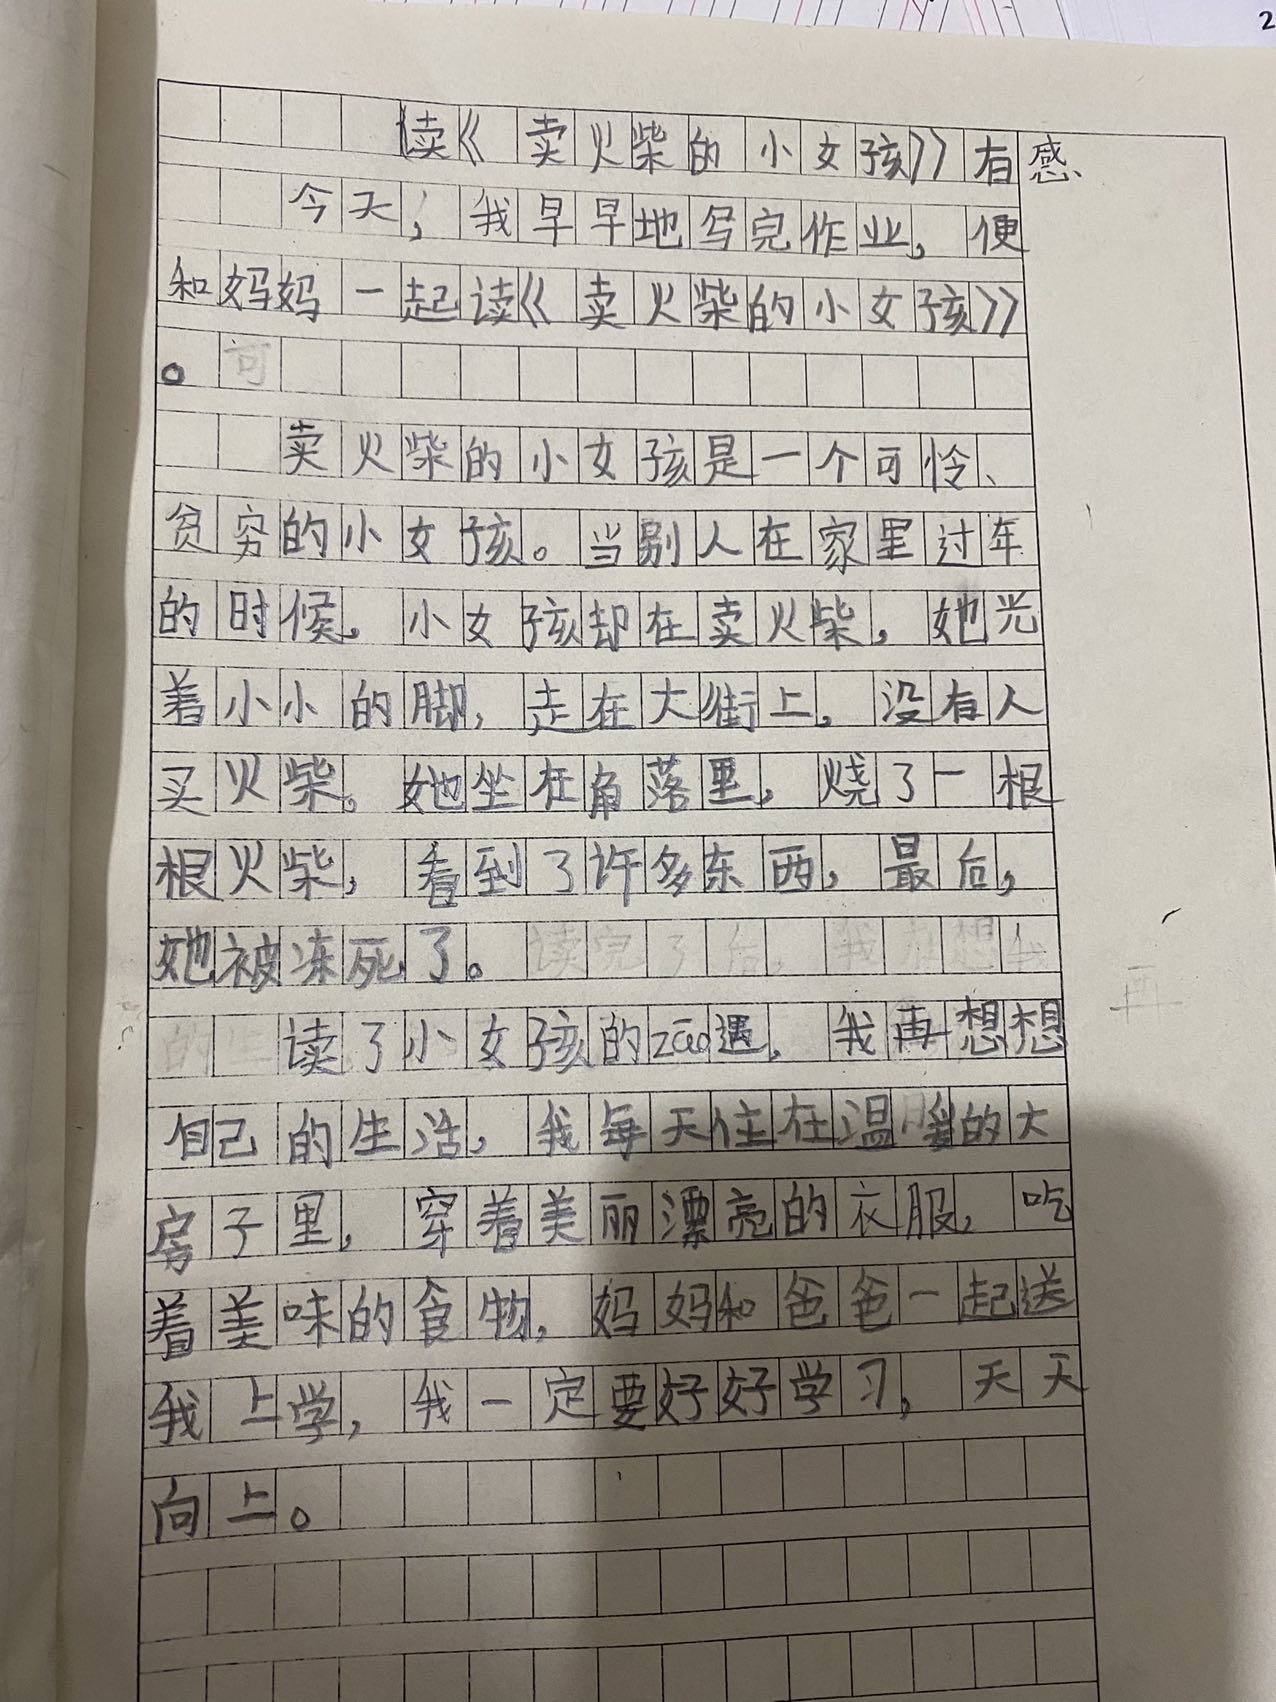 读《卖火柴的小女孩》有感
今天，我早早地写完作业，便
和妈妈一起读《卖火柴的小女孩》
。可
卖火柴的小女孩是一个可怜、
贫穷的小女孩。当别人在家里过年
的时候，小女孩却在卖火柴，她光
着小小的脚，走在大街上，没有人
买火柴。她坐在角落里，烧了一根
根火柴，看到了许多东西，最后，
她被冻死了。
读了小女孩的zāo遇，我再想想
自己的生活，我每天住在温暖的大
房子里，穿着美丽漂亮的衣服，吃
着美味的食物，妈妈和爸爸一起送
我上学，我一定要好好学习，天天
向上。
再
2